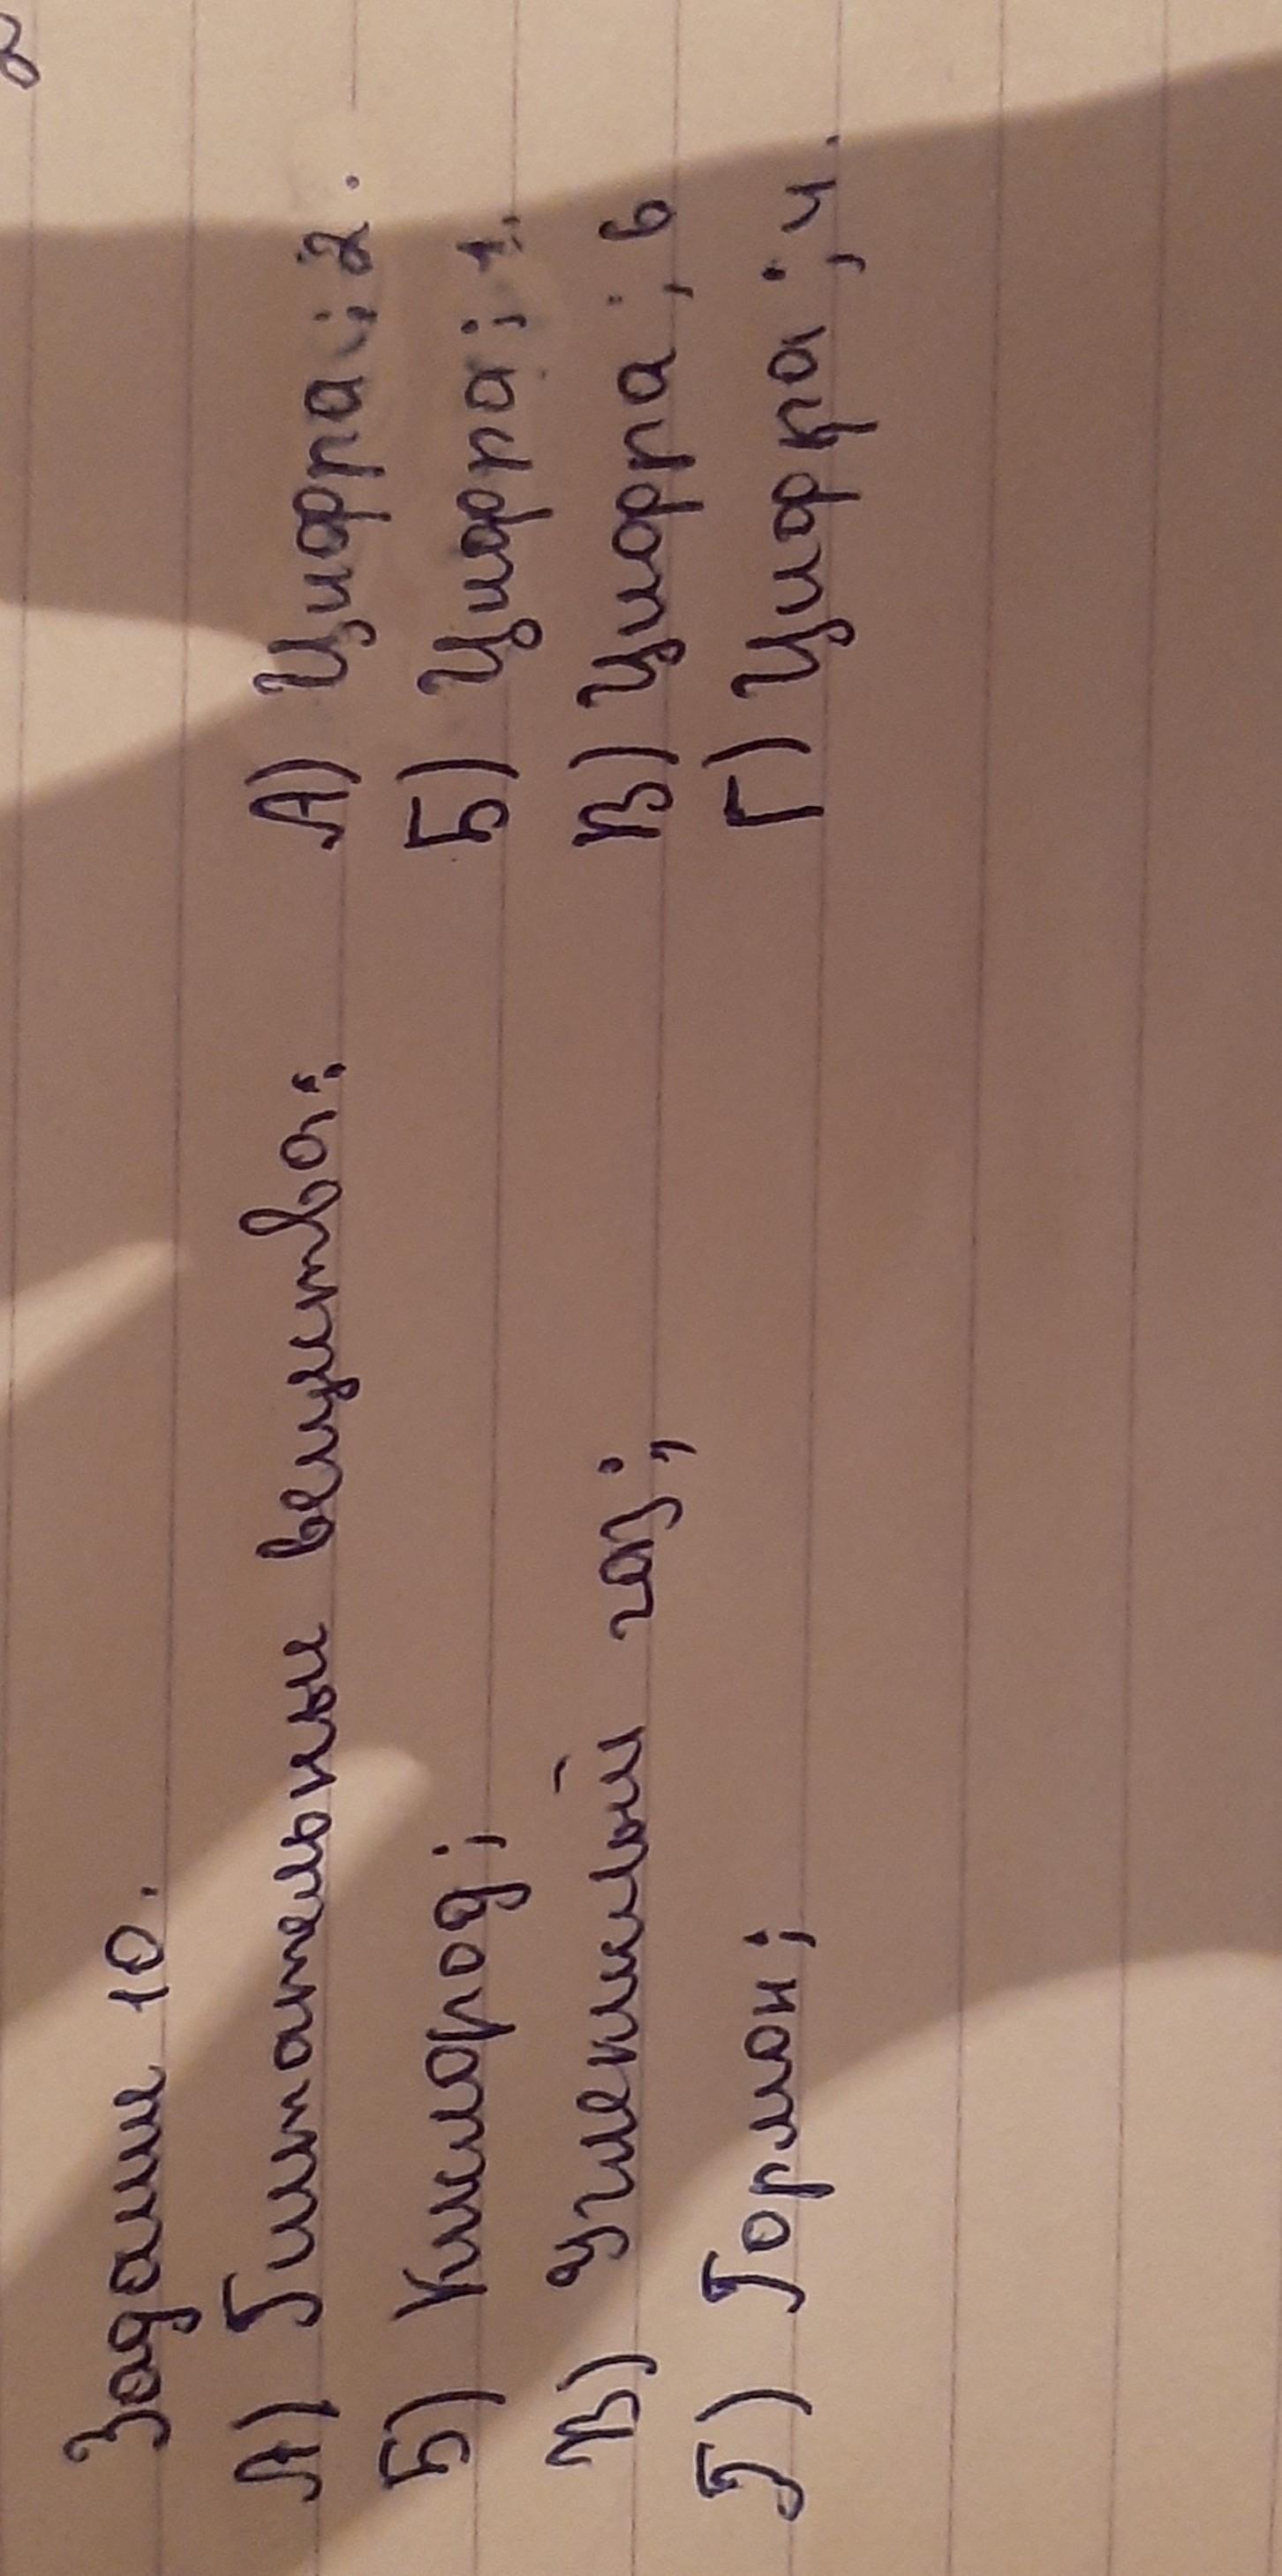 Задание 10.
А) Питательные вещества; А) Цифра; 2.
Б) Кислород; Б) Цифра; 1.
В) Углекислый газ; В) Цифра; 6
Г) Гормон; Г) Цифра; 4.